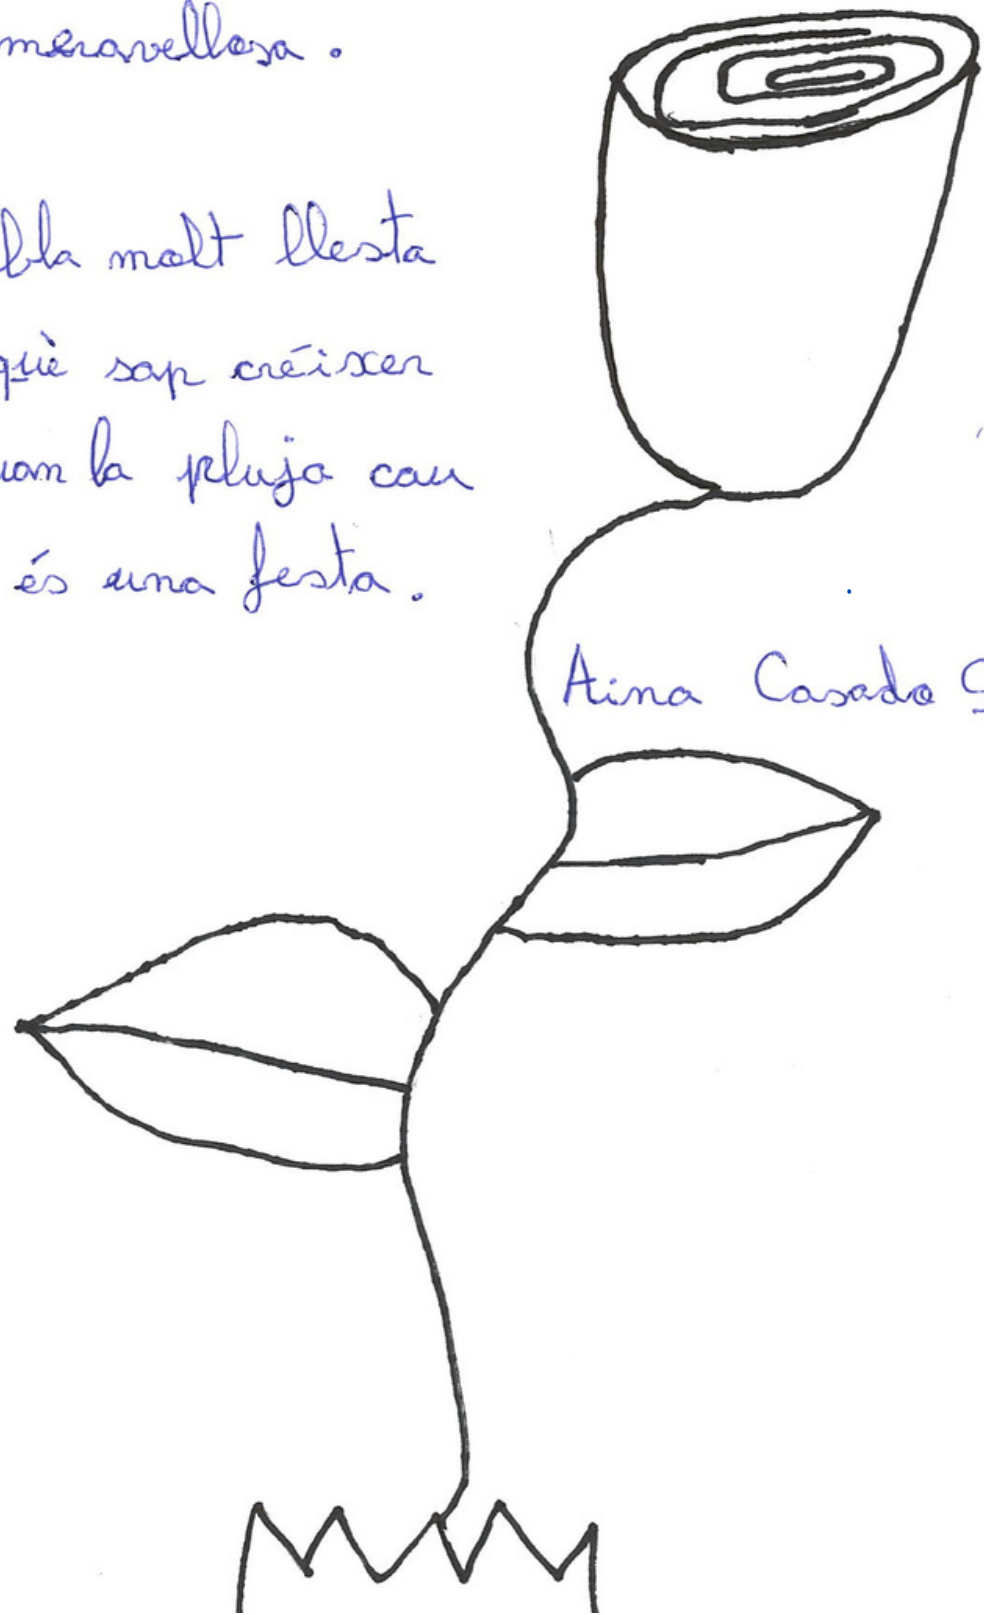 meravellosa.
bla molt llesta
què sap créixer
uan la pluja cau
és una festa.
Aina Casado